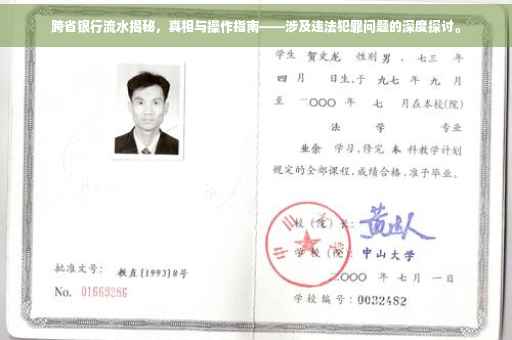 跨省银行流水揭秘，真相与操作指南——涉及违法犯罪问题的深度探讨。
学生 贺文龙 性别 男 、七三 年
四 月 日生,于 九七 年 九 月
至 二〇〇〇 年 七 月在本校(院)
法 学 专业
业余 学习,修完 本 科教学计划
规定的全部课程,成绩合格,准予毕业。
校(院)长:
学 校(院): 中山大学
二〇〇〇 年 七 月 一 日
批准文号: 教直[1993]8号
No. 01669286
学校编号: 0032482